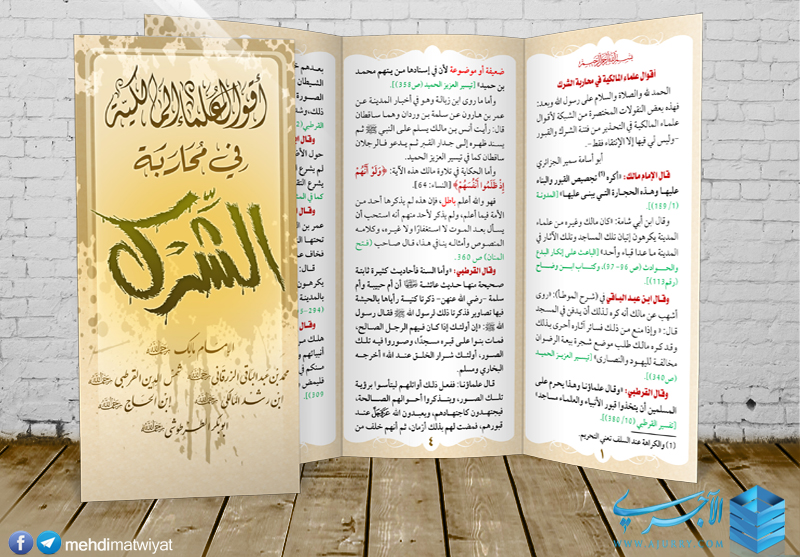 أقوال العلماء المالكية
في محاربة
الشرك
الإمام مالك
محمد بن عبد الباقي الزرقاني شمس الدين القرطبي
ابن رشد المالكي ابن الحاج
أبو بكر الطرطوشي
أقوال علماء المالكية في محاربة الشرك
الحمد لله والصلاة والسلام على رسول الله وبعد:
فهذه بعض النقولات المختصرة من الشبكة لأقوال
علماء المالكية في التحذير من فتنة الشرك والقبور
-وليس لي فيها إلا الإنتقاء فقط-.
أبو أسامة سمير الجزائري
قال الإمام مالك: «أكره (١) تجصيص القبور والبناء
عليها وهذه الحجارة التي يبنى عليها» [المدونة
(١/ ١٨٩)].
وقال ابن أبي شامة: «كان مالك وغيره من علماء
المدينة يكرهون إتيان تلك المساجد وتلك الآثار في
المدينة ما عدا قباء وأحد» [الباعث على إنكار البدع
والحوادث (ص ٩٦- ٩٧)، وكتاب ابن وضاح
رقم ١١٣)].
وقال ابن عبد الباقي في (شرح الموطأ): «روى
أشهب عن مالك أنه كره لذلك أن يدفن في المسجد
قال: « وإذا منع من ذلك فسائر آثاره أحرى بذلك
وقد كره مالك طلب موضع شجرة بيعة الرضوان
مخالفة لليهود والنصارى» [تيسير العزيز الحميد
(ص ٣٤٠)].
وقال القرطبي: «وقال علماؤنا وهذا يحرم على
المسلمين أن يتخذوا قبور الأنبياء والعلماء مساجد»
[تفسير القرطبي (١٠/ ٣٨٠)].
(١) والكراهة عند السلف تعني التحريم.
١
ضعيفة أو موضوعة لأن في إسنادها من يتهم محمد
بن حميد» [تيسير العزيز الحميد (ص ٣٥٨)].
وأما ما روى ابن زبالة وهو في أخبار المدينة عن
عمر بن هارون عن سلمة بن وردان وهما ساقطان
قال: رأيت أنس بن مالك يسلم على النبي ﷺ ثم
يسند ظهره إلى جدار القبر ثم يدعو فالرجلان
ساقطان كما في تيسير العزيز الحميد.
وأما الحكاية في تلاوة مالك هذه الآية: ﴿وَلَوْ أَنَّهُمْ
إِذْ ظَلَمُوا أَنْفُسَهُمْ﴾ [النساء: 64].
فهو والله أعلم باطل، فإن هذه لم يذكرها أحد من
الأمة فيما أعلم، ولم يذكر لأحد منهم أنه استحب أن
يسأل بعد الموت لا استغفارًا ولا غيره، وكلامه
المنصوص وأمثاله ينافي هذا، قال صاحب (فتح
المنان) ص ٣٦٠.
وقال القرطبي: «وأما السنة فأحاديث كثيرة ثابتة
صحيحة منها حديث عائشة أن أم حبيبة وأم
سلمة -رضي الله عنهن- ذكرتا كنيسة رأياها بالحبشة
فيها تصاوير فذكرتا ذلك لرسول الله ﷺ فقال رسول
الله ﷺ: «إن أولئك إذا كان فيهم الرجل الصالح،
فمات بنوا على قبره مسجدًا، وصوروا فيه تلك
الصور، أولئك شرار الخلق عند الله» أخرجه
البخاري ومسلم.
قال علماؤنا: ففعل ذلك أوائلهم ليتأسوا برؤية
تلك الصور، ويتذكروا أحوالهم الصالحة،
فيجتهدون كاجتهادهم، ويعبدون الله عند
قبورهم، فمضت لهم بذلك أزمان، ثم أنهم خلف من
٤
بعدهم
الشيطان
الصورة
القرطبي
حول
لم يشرع
يشرع
كما في
عمر بن
تحتها
فخاف
قال:
يكرهون
بالمدينة
٢٩٤-
هلك من
أنبيائهم
منكم في
فليمض
٣٠٩)]
mehdimatwiyat
الآجري
WWW.AJURRY.COM